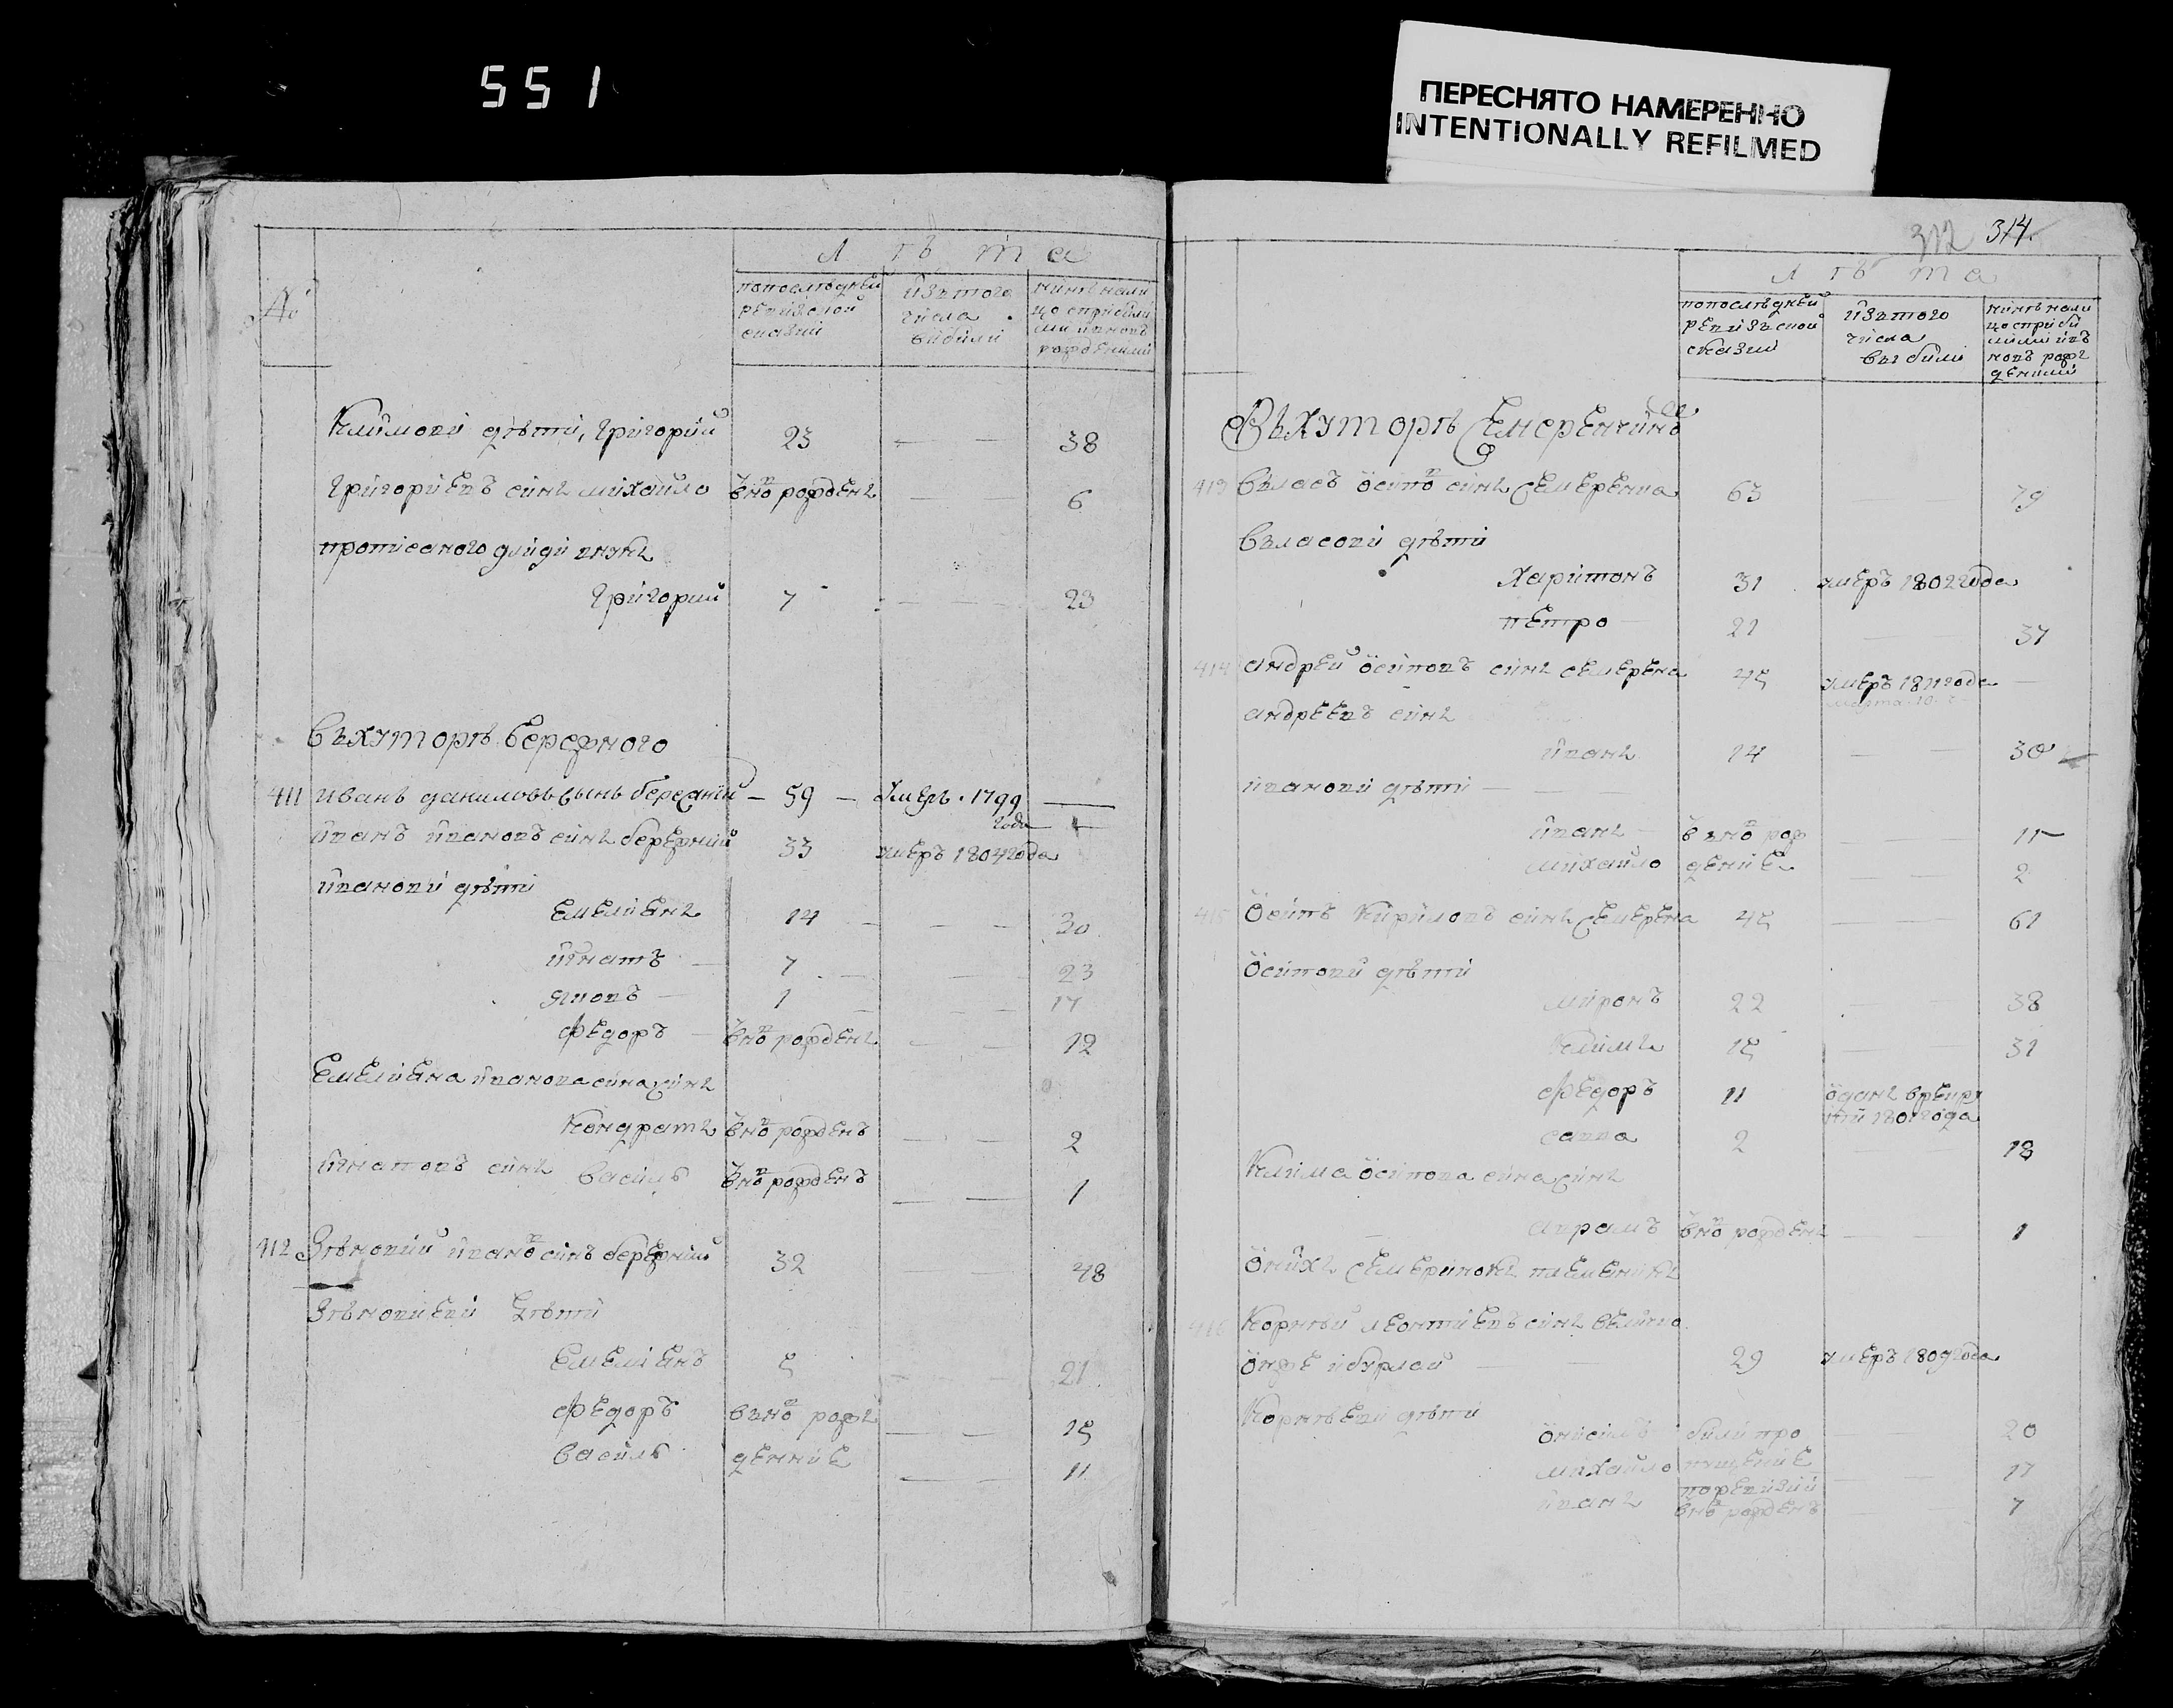 551
ПЕРЕСНЯТО НАМЕРЕННО
INTENTIONALLY REFILMED
№
Лѣта
попослѣдней ревизской сказки
изтого числа выбыли
нинѣ налицо сприбилими ивновъ рожденними
Климови дѣти, григорий 23 — — 38
григориевъ синъ михайло вновъ рожденъ — — 6
прописаного дийди внукъ
григорий 7 — — 23
Въхуторѣ бережного
411 Иванъ даниловъ сынъ бережний — 59 — Умеръ 1799 года —
иванъ ивановъ синъ бережний 33 умеръ 1804 года
ивановй дѣти
Емелиенъ 14 — — 30
игнатъ 7 — — 23
яковъ 1 — — 17
федоръ вновъ рожденъ — — 12
Емелиена иванова сина синъ
Кондратъ вновъ рожденъ — — 2
игнатовъ синъ василь вновъ рожденъ — — 1
412 Зѣновий ивановъ синъ бережний 32 — — 48
Зѣновиеви дѣти
Емелиенъ 5 — — 21
федоръ вновъ рож — — 15
василь дение — — 11
312 314.
Лѣта
попослѣдней ревизской сказки
изтого числа выбили
нинѣ налицо сприбилими ивновъ рожденими
Въхуторѣ Семеренкинѣ
413 Власъ осиповъ синъ Семеренка 63 — 79
Власови дѣти
харитонъ 31 умеръ 1802 года
петро 21 — 37
414 андрей осиповъ синъ семерена 45 умеръ 1811 года —
марта 10
андреевъ синъ
иванъ 14 — — 30
иванови дѣти — —
иванъ вновъ рож — — 11
михайло дение — — 2
415 осипъ Кирилловъ синъ Семерена 45 — — 61
осипови дѣти
миронъ 22 — 38
климъ 15 — 31
федоръ 11 оданъ врекру
ти 180 года
савва 2 — 18
Клима осипова сина синъ
аврамъ вновъ рожденъ — 1
онихъ семеринокъ племеникъ
416 Корнѣй леонтиевъ синъ
онже ибурлай — — 29 умеръ 1809 года
Корнѣеви дѣти
онисимъ били про — 20
михайло пущение — 17
поревизий
иванъ вновъ рожденъ — 7